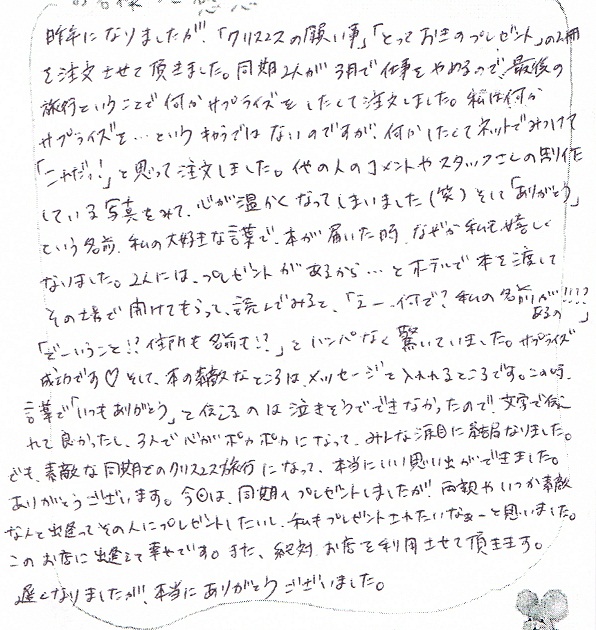 昨年になりましたが、「クリスマスの願い事」「とっておきのプレゼント」の2冊
を注文させて頂きました。同期2人が3月で仕事をやめるので、最後の
旅行ということで何かサプライズをしたくて注文しました。私は何か
サプライズを…というキャラではないのですが、何かしたくてネットでみつけて
「これだっ!」と思って注文しました。他の人のコメントやスタッフさんの制作
している写真をみて、心が温かくなってしまいました(笑)そして「ありがとう」
という名前、私の大好きな言葉で、本が届いた時、なぜか私も嬉しく
なりました。2人には、プレゼントがあるから…とホテルで本を渡して
その場で開けてもらって、読んでみると、「えー、何で?私の名前が!!??
あるの」
「どーいうこと!?住所も名前も!?」とハンパなく驚いていました。サプライズ
成功です♡そして、本の素敵なところは、メッセージを入れれるところです。この時、
言葉で「いつもありがとう」と伝えるのは泣きそうでできなかったので、文字で伝
れて良かったし、3人で心がポカポカになって、みんな涙目に結局なりました。
でも、素敵な同期とのクリスマス旅行になって、本当にいい思い出ができました。
ありがとうございます。今回は、同期へプレゼントしましたが、両親やいつか素敵
な人と出逢ってその人にプレゼントしたいし、私もプレゼントされたいなぁーと思いました。
このお店に出逢えて幸せです。また、絶対お店を利用させて頂きます。
遅くなりましたが、本当にありがとうございました。